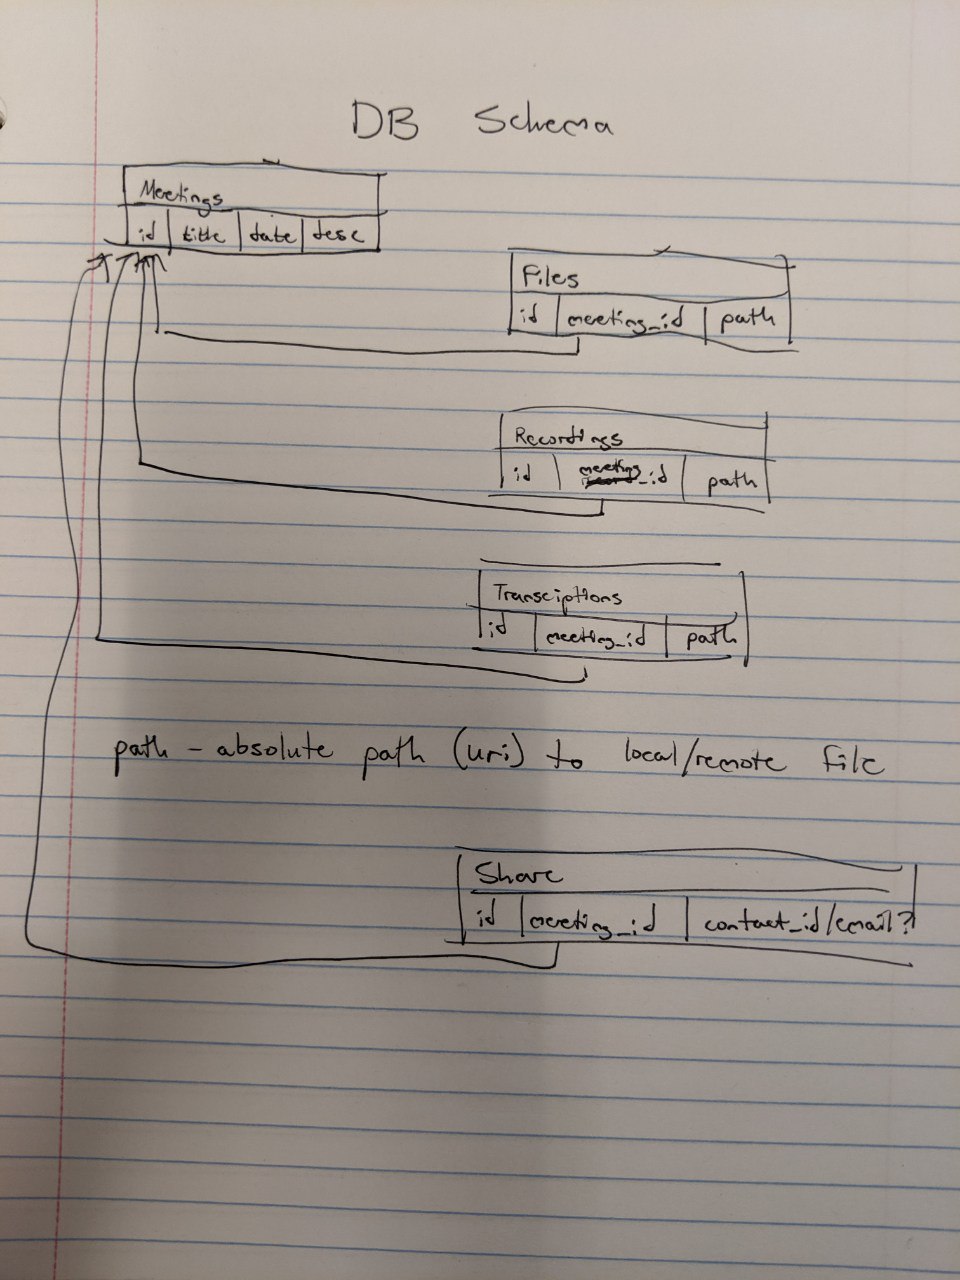 DB Schema
Meetings
id title date desc
Files
id meeting_id path
Recordings
id meeting_id path
Transciptions
id meeting_id path
path - absolute path (uri) to local/remote file
Share
id meeting_id contact_id/email?